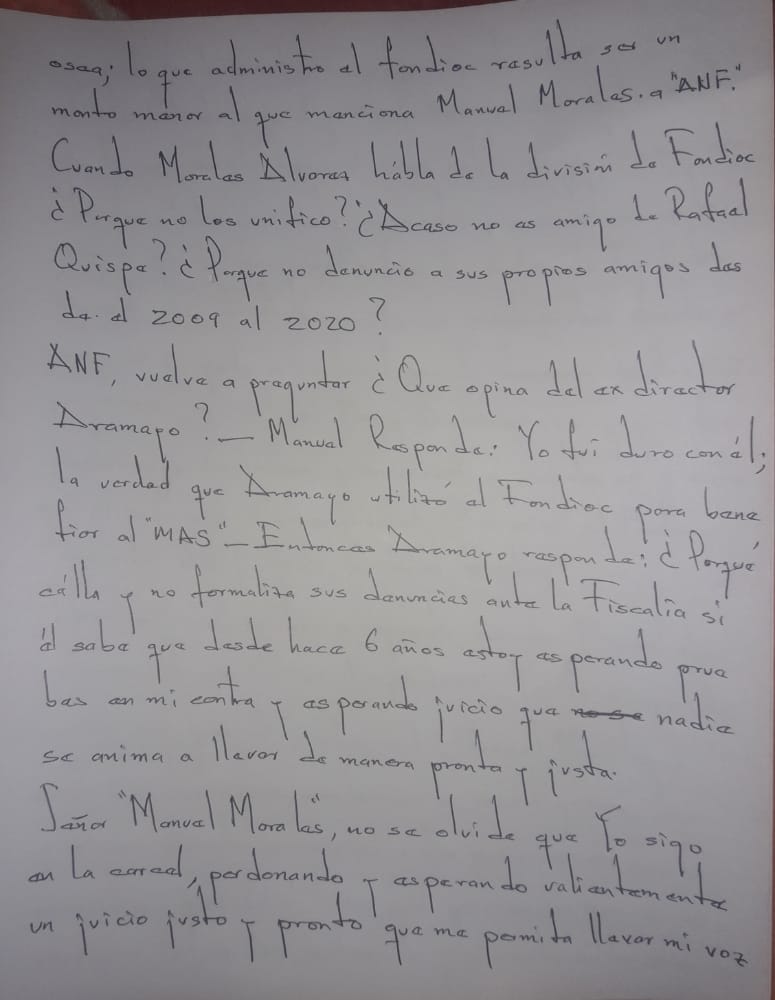 osea; lo que administro el fondioc resulta ser un
monto menor al que menciona Manuel Morales. a "ANF."
Cuando Morales Alvarez hábla de la división de Fondioc
¿Porque no los unifico? ¿Acaso no es amigo de Rafael
Quispe? ¿Porque no denuncio a sus propios amigos des
de. el 2009 al 2020?
ANF, vuelve a preguntar ¿Que opina del ex director
Aramayo? — Manuel Responde: Yo fui duro con él;
la verdad que Aramayo utilizó el Fondioc para bene
fior al "MAS" — Entonces Aramayo responde: ¿Porqué
cálla y no formaliza sus denuncias ante la Fiscalía si
él sabe que desde hace 6 años estoy esperando prue
bas en mi contra y esperando juicio que no se nadie
se anima a llevar de manera pronta y justa.
Señor "Manuel Morales", no se olvide que Yo sigo
en la carcel, perdonando y esperando valientemente
un juicio justo y pronto que me permita llevar mi voz